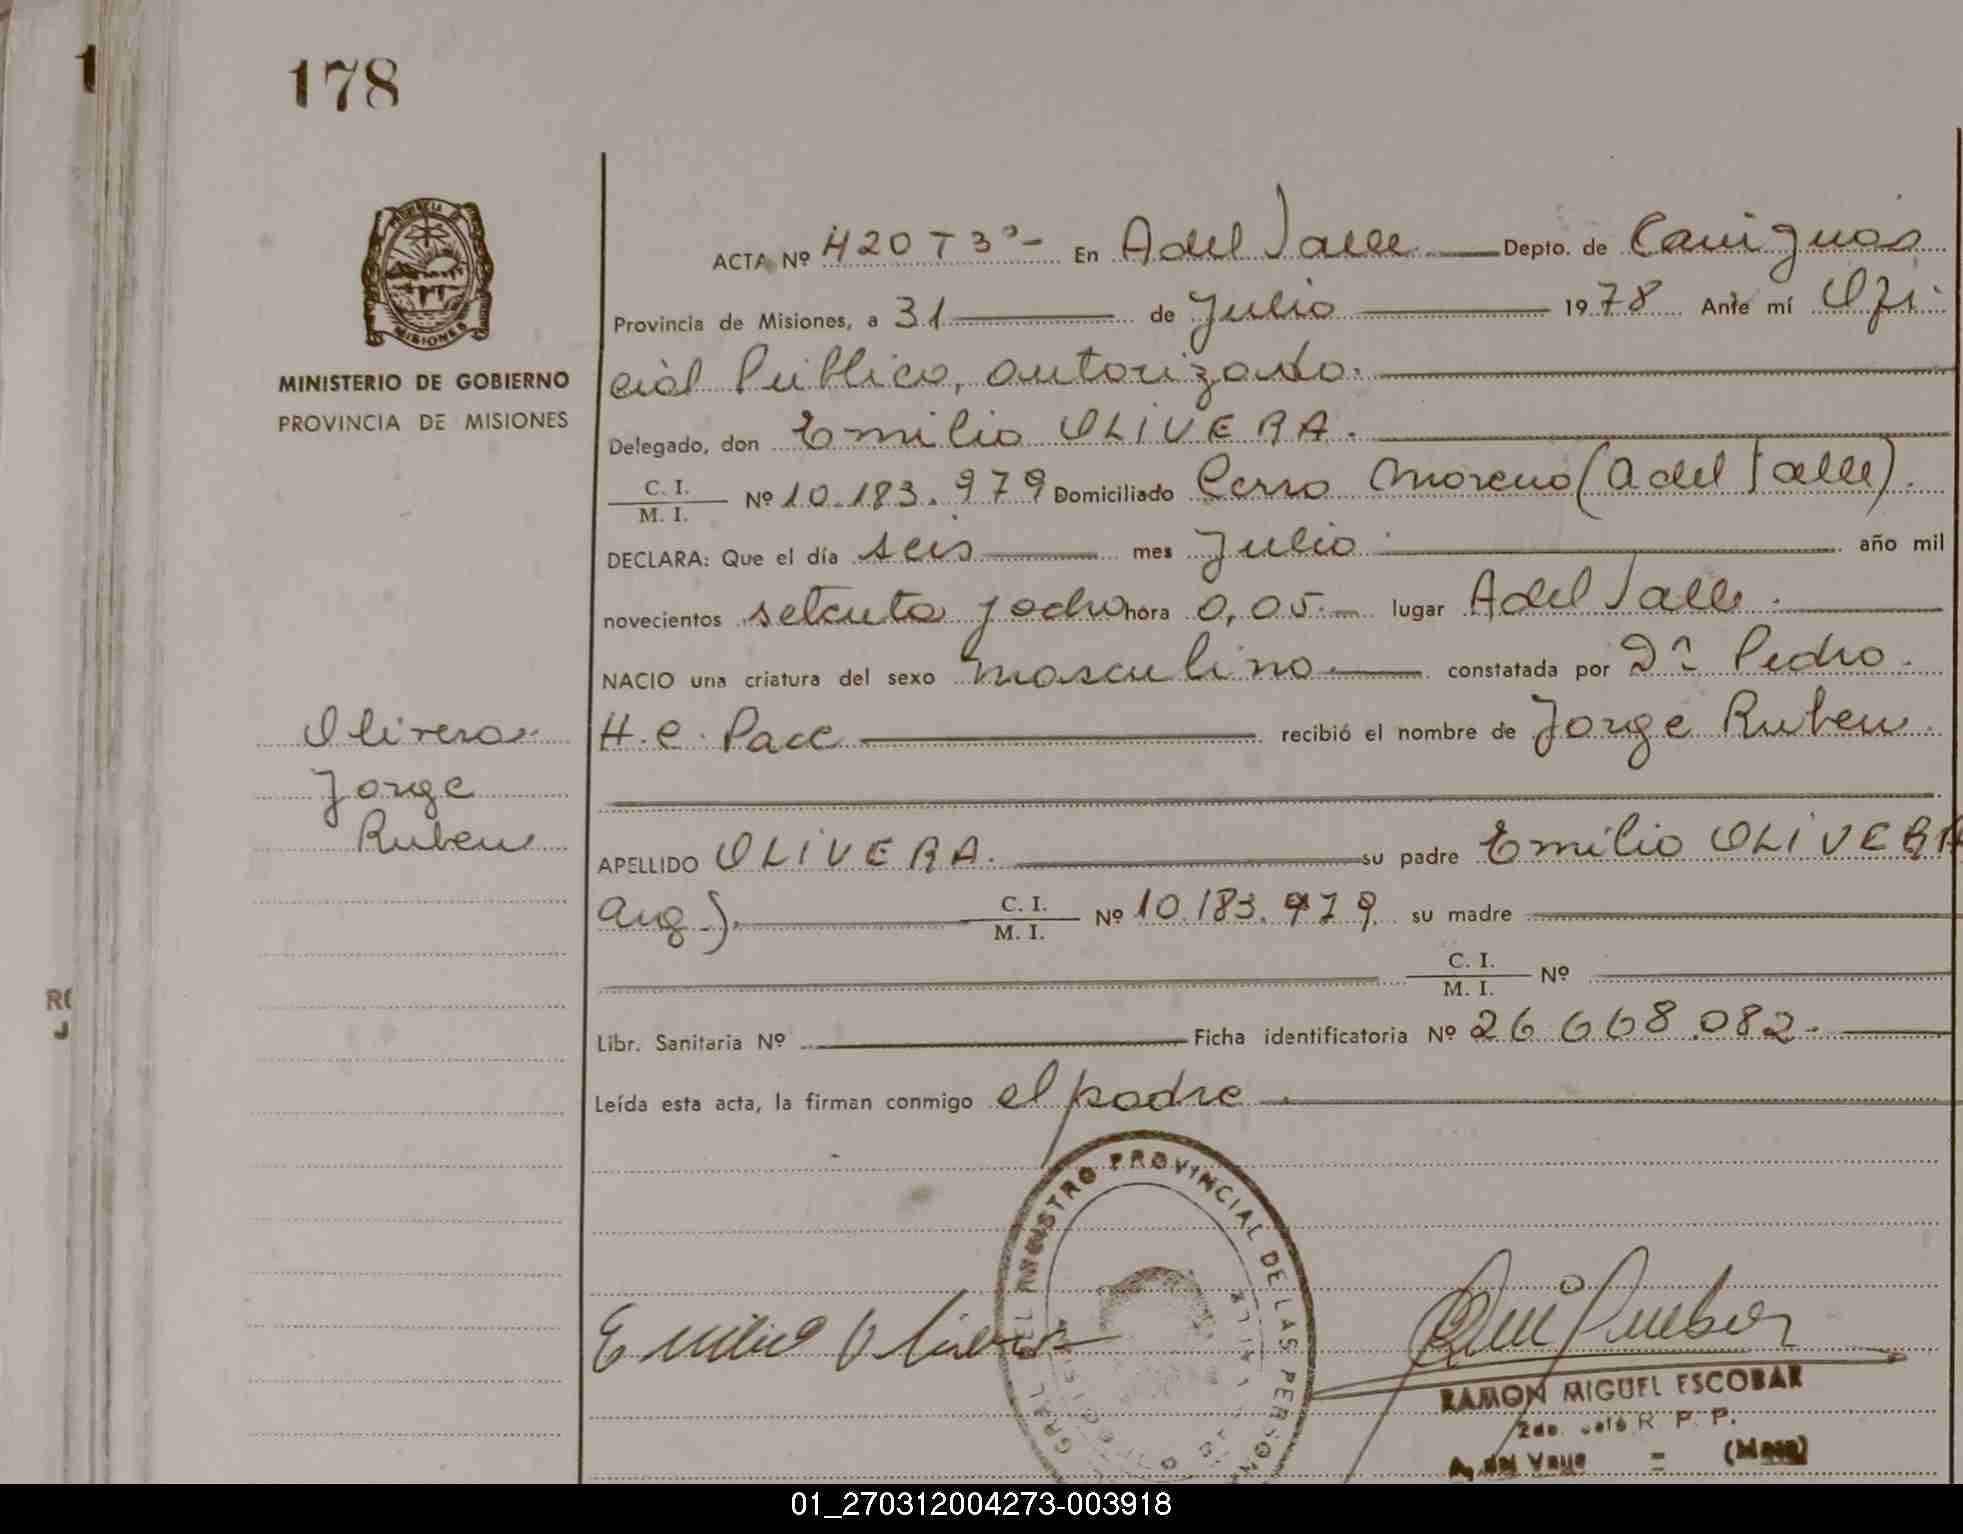 1
178
PROVINCIA DE
MISIONES
MINISTERIO DE GOBIERNO
PROVINCIA DE MISIONES
ACTA Nº 420 T3º- En A del Valle Depto. de Cainguás
Provincia de Misiones, a 31 de Julio 1978 Ante mí Ofi
cial Público, autorizado.
Delegado, don Emilio OLIVERA.
C. I.
M. I.
Nº 10.183.979 Domiciliado Cerro Moreno (A del Valle).
DECLARA: Que el día seis mes Julio año mil
novecientos setenta y ocho hora 0,05. lugar A del Valle.
NACIO una criatura del sexo masculino constatada por Dr Pedro
H. C. Pace recibió el nombre de Jorge Ruben.
Olivera
Jorge
Ruben
APELLIDO OLIVERA. su padre Emilio OLIVERA
Arg). C. I.
M. I.
Nº 10.183.979. su madre
C. I.
M. I.
Nº
Libr. Sanitaria Nº Ficha identificatoria Nº 26.668.082.-
Leída esta acta, la firman conmigo el padre
REGISTRO PROVINCIAL DE LAS PERSON
GRAL DEL
Emilio Olivera
RAMON MIGUEL ESCOBAR
2do. Jefe R. P. P.
A. del Valle = (Mnes)
01_270312004273-003918